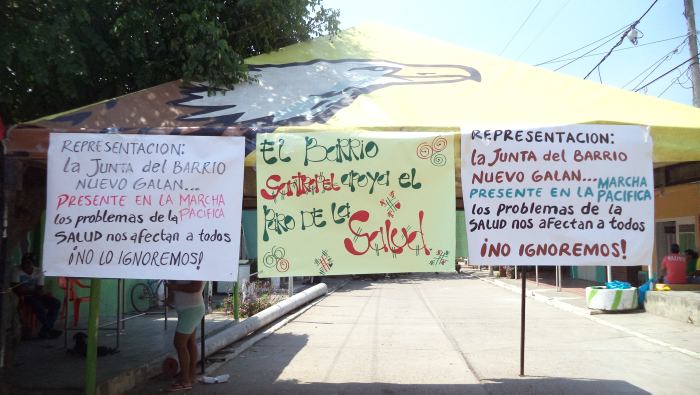 REPRESENTACION:
la JUNTA del BARRIO
NUEVO GALAN...
PRESENTE EN LA MARCHA
PACIFICA
los problemas de la
SALUD nos afectan a todos
¡NO LO IGNOREMOS!
EL BARRIO
apoya el
PARO DE LA
Salud
REPRESENTACION:
la JUNTA del BARRIO
NUEVO GALAN...
PRESENTE EN LA MARCHA
PACIFICA
los problemas de la
SALUD nos afectan a todos
¡NO IGNOREMOS!